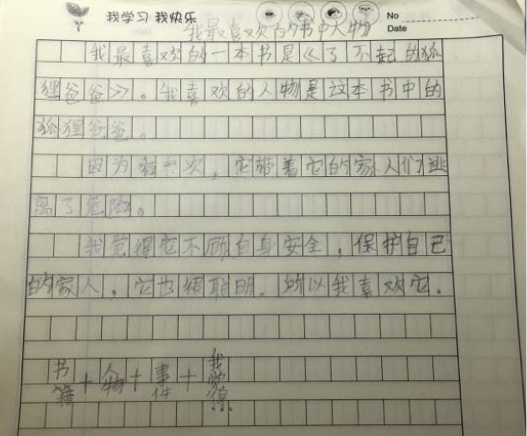 我学习 我快乐
No
Date
我最喜欢的书中人物
我最喜欢的一本书是《了不起的狐
狸爸爸》。我喜欢的人物是这本书中的
狐狸爸爸。
因为有一次，它带着它的家人们逃
离了危险。
我觉得它不顾自身安全，保护自己
的家人，它也很聪明。所以我喜欢它.
书籍+人物+事件+我觉得…